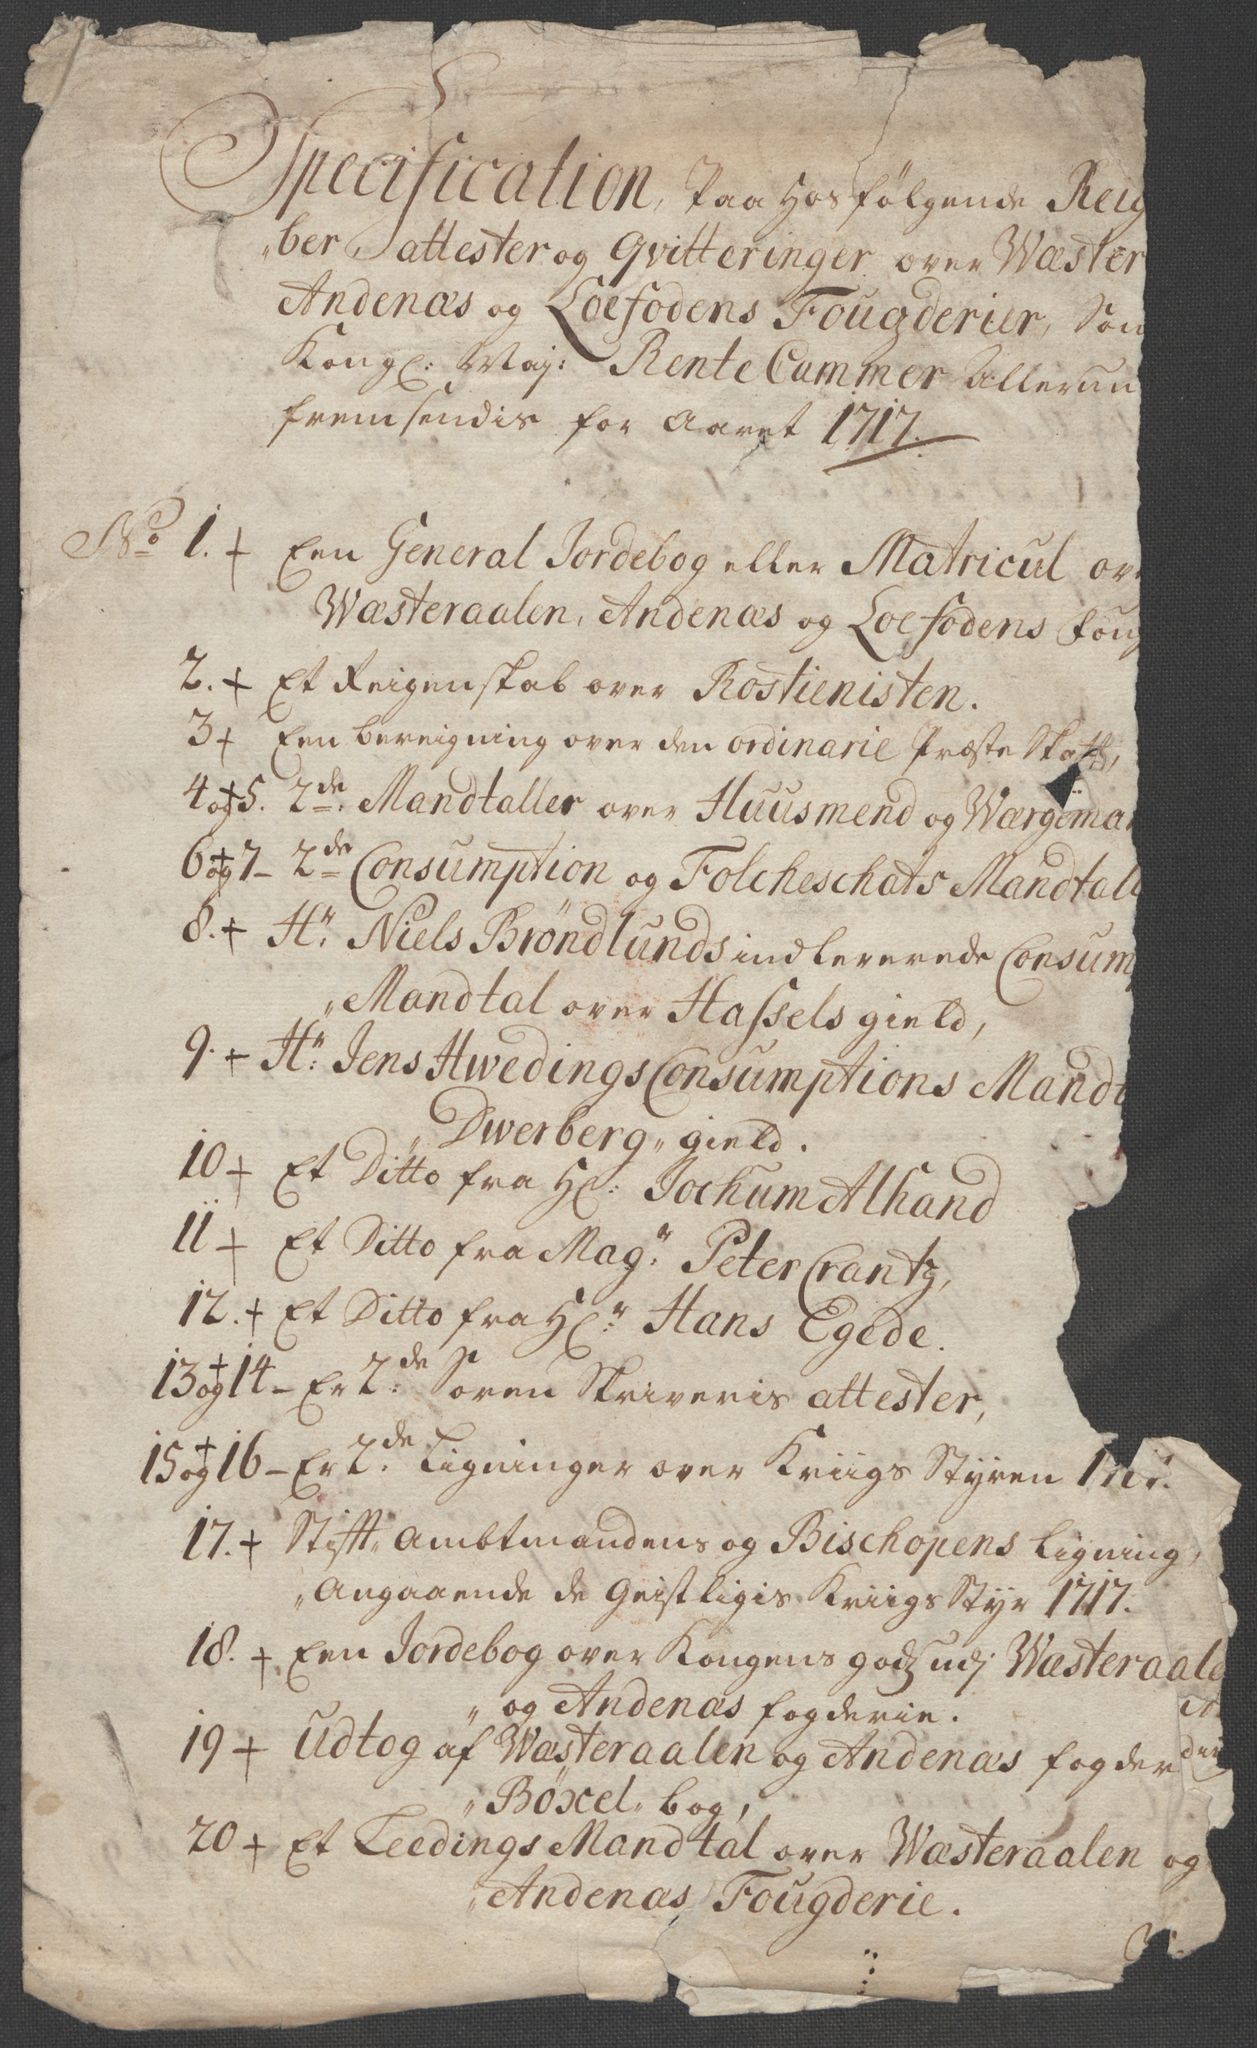 Specification, Paa Hosfølgende Reig
„ber attester og Qvitteringer over Wæster
Andenæs og Loefodens Fougderier, Som
Kongl: May: Rente Cammer Allerun
fremsendis for Aaret 1717.
No 1. + Een General Jordebog eller Matricul ov
Wæsteraalen, Andenæs og Loefodens foug
2. + Et Reigenskab over Rostienisten.
3 + Een bereigning over den ordinarie Præste Skatt,
4 og 5. + 2de Mandtaller over Huusmend og Wærgöma
6 og 7 + 2de Consumption og Folcheschats Mandtall
8. + Hr. Niels Bröndlunds indleverede Consump
„Mandtal over Hassels gield,
9. + Hr: Jens Hwedings Consumptions Mandt
„Dwerberg„ gield.
10 + Et Ditto fra Hr: Jochum Alhand
11 + Et Ditto fra Magr: Peter Crantz,
12. + Et Ditto fra Hr: Hans Egede.
13 og 14 + Er 2de Soren Skriveris attester,
15 og 16 + Er 2de Ligninger over Kriigs Styren 1717.
17. + Stifft„ Ambtmandens og Bischopens Ligning,
„Angaaende de Geistligis Kriigs Styr 1717.
18. + Een Jordebog over Kongens godz udj Wæsteraale
„og Andenæs fogderie.
19 + Udtog af Wæsteraalen og Andenæs fogder
„Böxel„ bog,
20 + Et Leedings Mandtal over Wæsteraalen og
„Andenæs Fougderie.